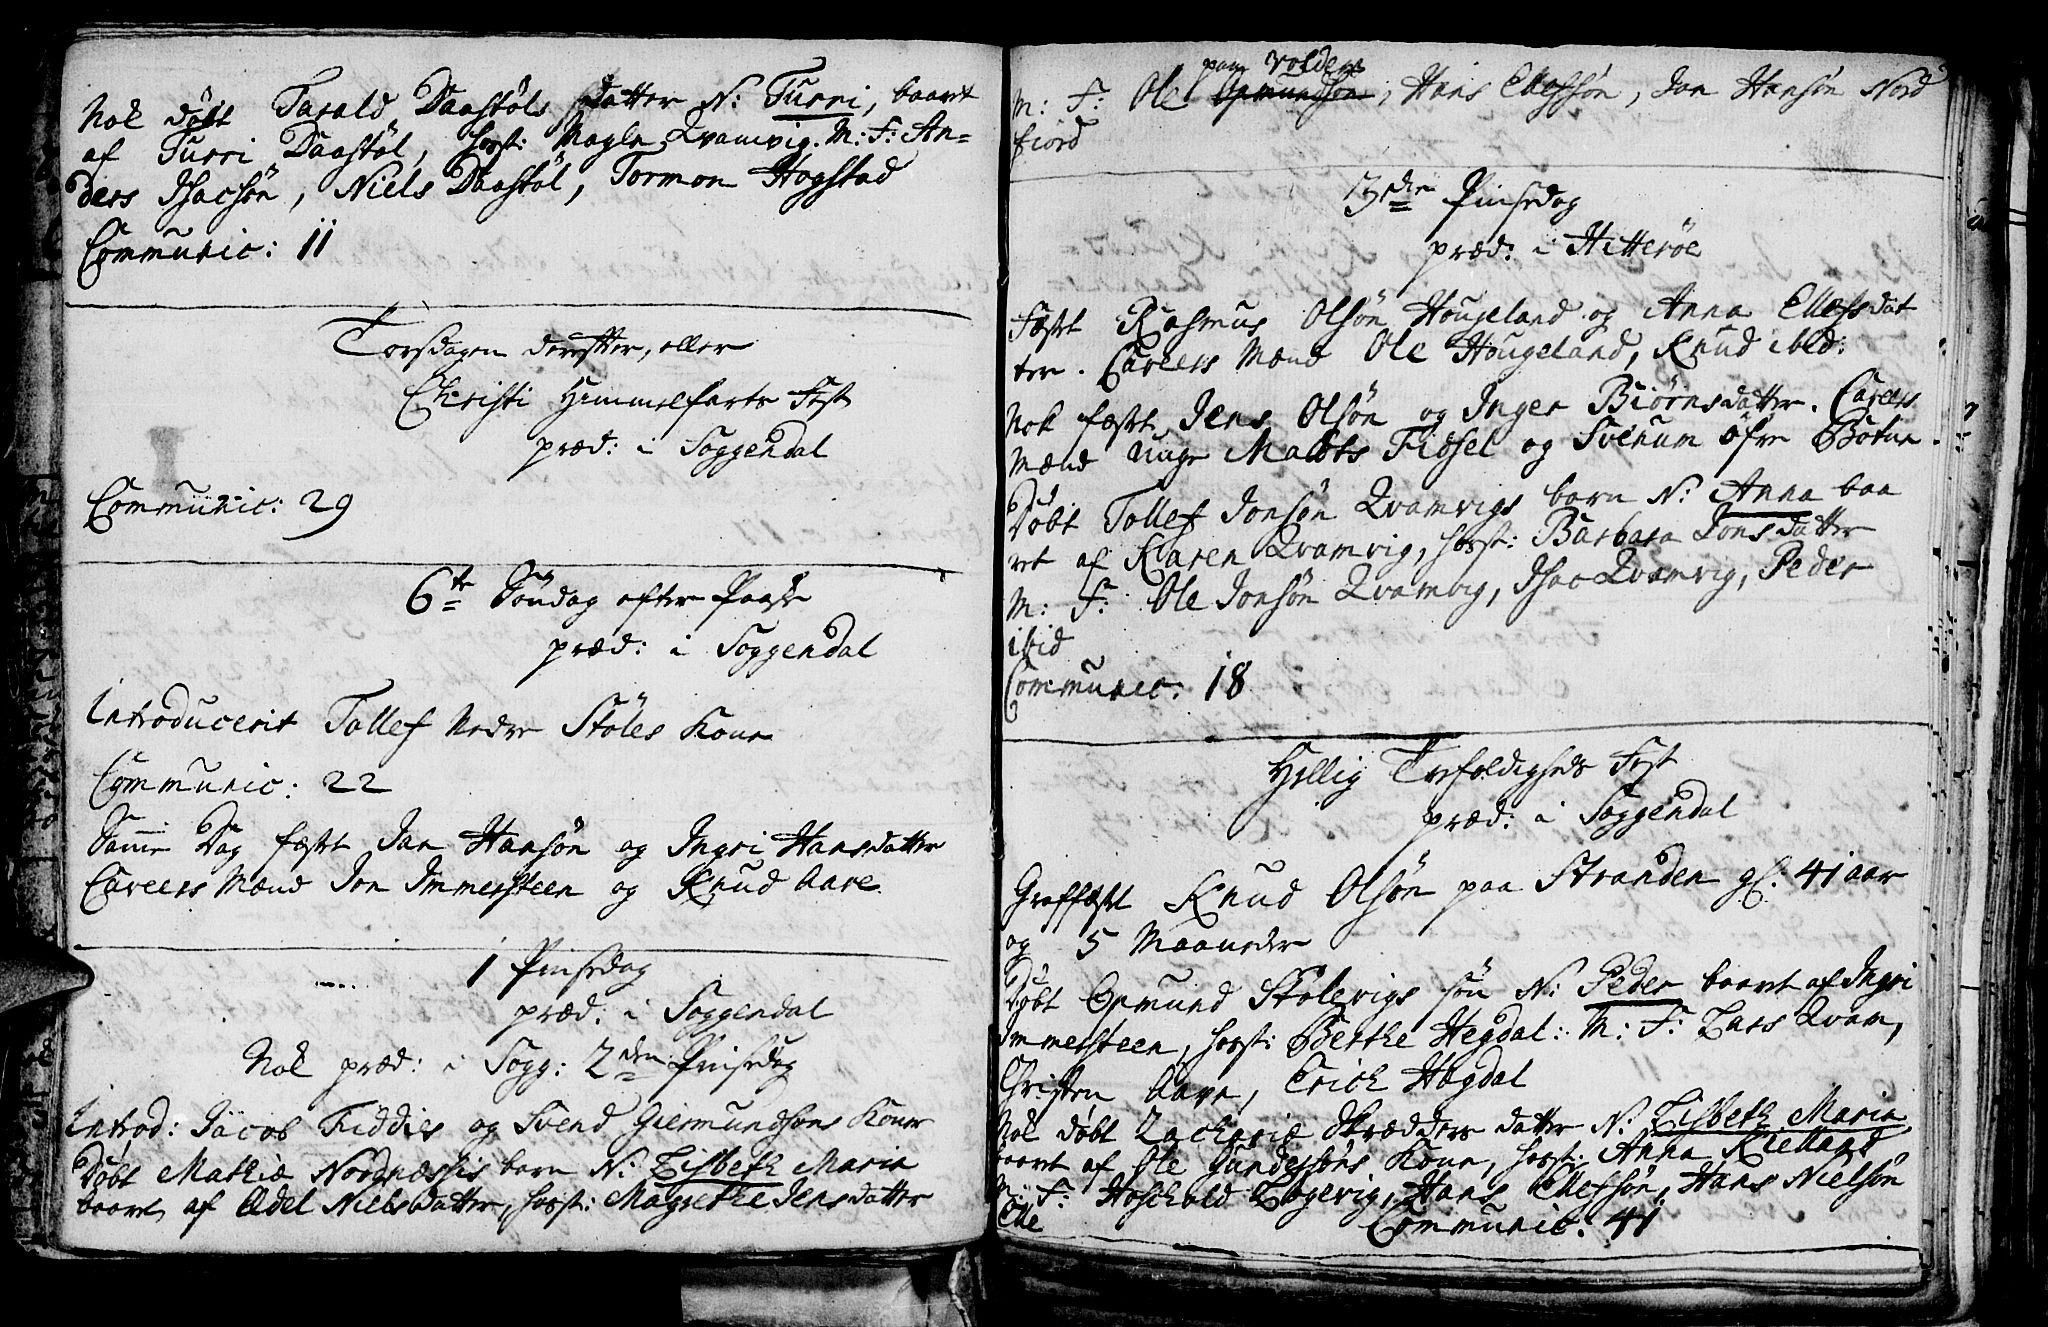 Nok døbt Tarald Daastøls Datter N: Turri, baaret
af Turri Daastøl, host: Magle Qvamvig. M: F: An=
ders Isachsøn, Niels Daastøl, Tormon Hogstad
Communic: 11
Torsdagen derefter, eller
Christi Himmelfarts Fest
præd: i Soggendal
Communic: 29
6te Søndag efter Paaske
præd: i Soggendal
Introducerit Tollef Nedre Støles Kone
Communic: 22
Samme Dag fæst Jan Hansøn og Ingri Hansdatter
Careers Mænd Jon Immersteen og Knud Aare.
1 Pinsedag
præd: i Soggendal
Nok præd: i Sogg: 2den Pinsedag
Introd: Jacob Fiddies og Svend Giermundsøns Koner
Døbt Mathiæ Nordnæssis barn N: Lisbeth Maria
baaret af Adel Nielsdatter, host: Magrethe Jensdatter
paa Volden
M: F: Ole Opmundsøn, Hans Ellefsøn, Jan Hansøn Nord
fiord
3die Pinsedag
præd: i Hitterøe
Fæst Rasmus Olsøn Hougeland og Anna Ellefsdat
ter. Careers Mænd Ole Hougeland, Knud ibid:
Nok fæst Jens Olsøn og Inger Biørnsdatter. Careers
Mænd Unge Maldts Fidsel og Svenum øfre Botne.
Døbt Tollef Jonsøn Qvamvigs barn N: Anna baa
ret af Karen Qvamvig, host: Barbara Jonsdatter
M: F: Ole Jonsøn Qvamvig, Isac Qvamvig, Peder
ibid
Communic: 18
Hellig Trefoldigheds Fest
præd: i Soggendal
Graffæst Knud Olsøn paa Stranden gl: 41 aar
og 5 Maaneder
Døbt Opmund Stolevigs søn N: Peder baaret af Ingri
Immersteen, host: Berthe Hegdal: M: F: Lars Qvam,
Christen Aare, Erich Hogdal
Nok døbt Zachariæ Skrædders datter N: Lisbeth Maria
baaret af Ole Gundersøns Kone, host: Anna Kielland
M: F: Hoskold Logevig, Hans Ellefsøn, Hans Nielsøn
Elle Communic: 41